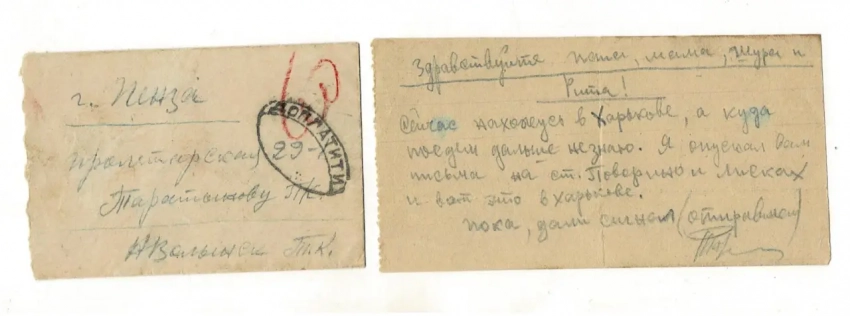 г. Пенза
пролетарская
Таратынову П.К.
Н Волынск Т.К.
ДОПЛАТИТИ
29-
Здравствуйте папа, мама, Шура и
Рита!
Сейчас нахожусь в Харькове, а куда
поедем дальше не знаю. Я опускал вам
письма на ст. Поворино и Лисках
и вот это в Харькове.
Пока, дали сигнал (отправляем)